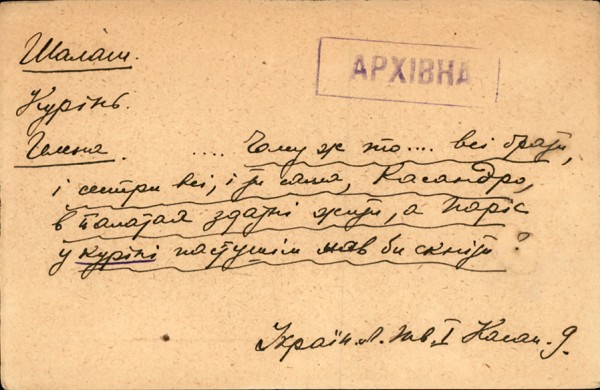 Шалаш.
АРХІВНА
Курінь.
Гелена. .... Чому ж то.... всі брати,
і сестри всі, і ти сама, Касандро,
в палатах здатні жити, а Паріс
у курені пастушім мав би скніти?
Україн. Л. тв. I Касан. 9.